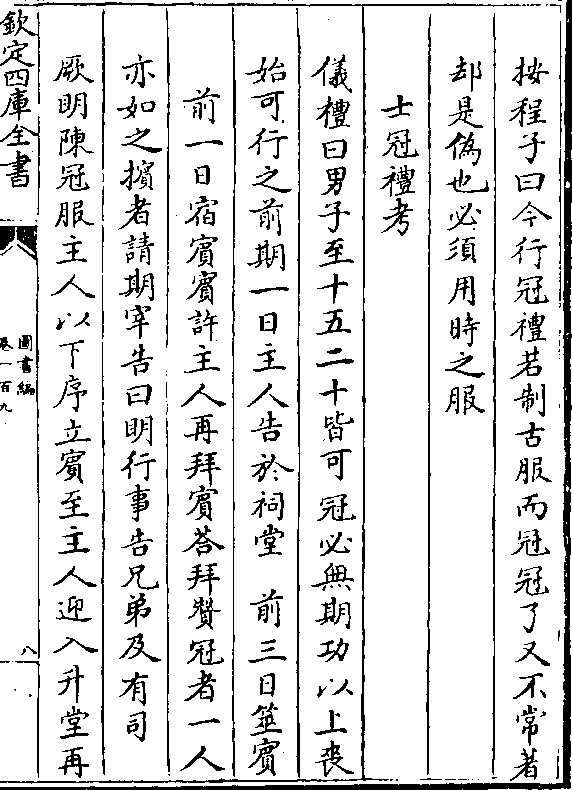 按程子曰今行冠禮若制古服而冠冠了又不常着
却是偽也必須用時之服
士冠禮考
儀禮曰男子至十五二十皆可冠必無期功以上喪
始可行之前期一日主人告於祠堂　前三日筮賓
前一日宿賓賓許主人再拜賓荅拜贊冠者一人
亦如之擯者請期宰告曰明行事告兄弟及有司
厥明陳冠服主人以下序立賓至主人迎入升堂再
欽定四庫全書
圖書編
卷一百九
八